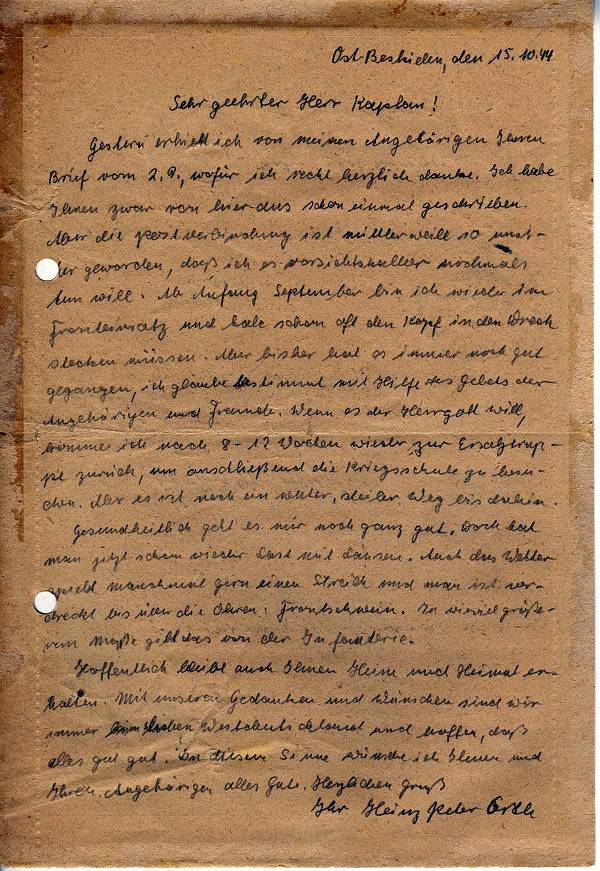 Ost-Beskiden, den 15.10.44
Sehr geehrter Herr Kaplan!
Gestern erhielt ich von meinen Angehörigen Ihren
Brief vom 2.9., wofür ich recht herzlich danke. Ich habe
Ihnen zwar von hier aus schon einmal geschrieben.
Aber die Postverbindung ist mittlerweile so unsi-
cher geworden, daß ich es vorsichtshalber nochmals
tun will. Ab Anfang September bin ich wieder im
Fronteinsatz und habe schon oft den Kopf in den Dreck
stecken müssen. Aber bisher hat es immer noch gut
gegangen, ich glaube bestimmt mit Hilfe des Gebets der
Angehörigen und Freunde. Wenn es der Herrgott will,
komme ich nach 8-12 Wochen wieder zur Ersatztrup-
pe zurück, um anschließend die Kriegsschule zu besu-
chen. Aber es ist noch ein weiter, steiler Weg bis dahin.
Gesundheitlich geht es mir noch ganz gut. Doch hat
man jetzt schon wieder Last mit Läusen. Auch das Wetter
spielt manchmal gern einen Streich und man ist ver-
dreckt bis über die Ohren: Frontschwein. In wieviel größe-
rem Maße gilt das von der Infanterie.
Hoffentlich bleibt auch Ihnen Heim und Heimat er-
halten. Mit unseren Gedanken und Wünschen sind wir
immer im lieben Westdeutschland und hoffen, daß
alles gut gut. In diesem Sinne wünsche ich Ihnen und
Ihren Angehörigen alles Gute. Herzlichen Gruß
Ihr Heinz Peter Orth